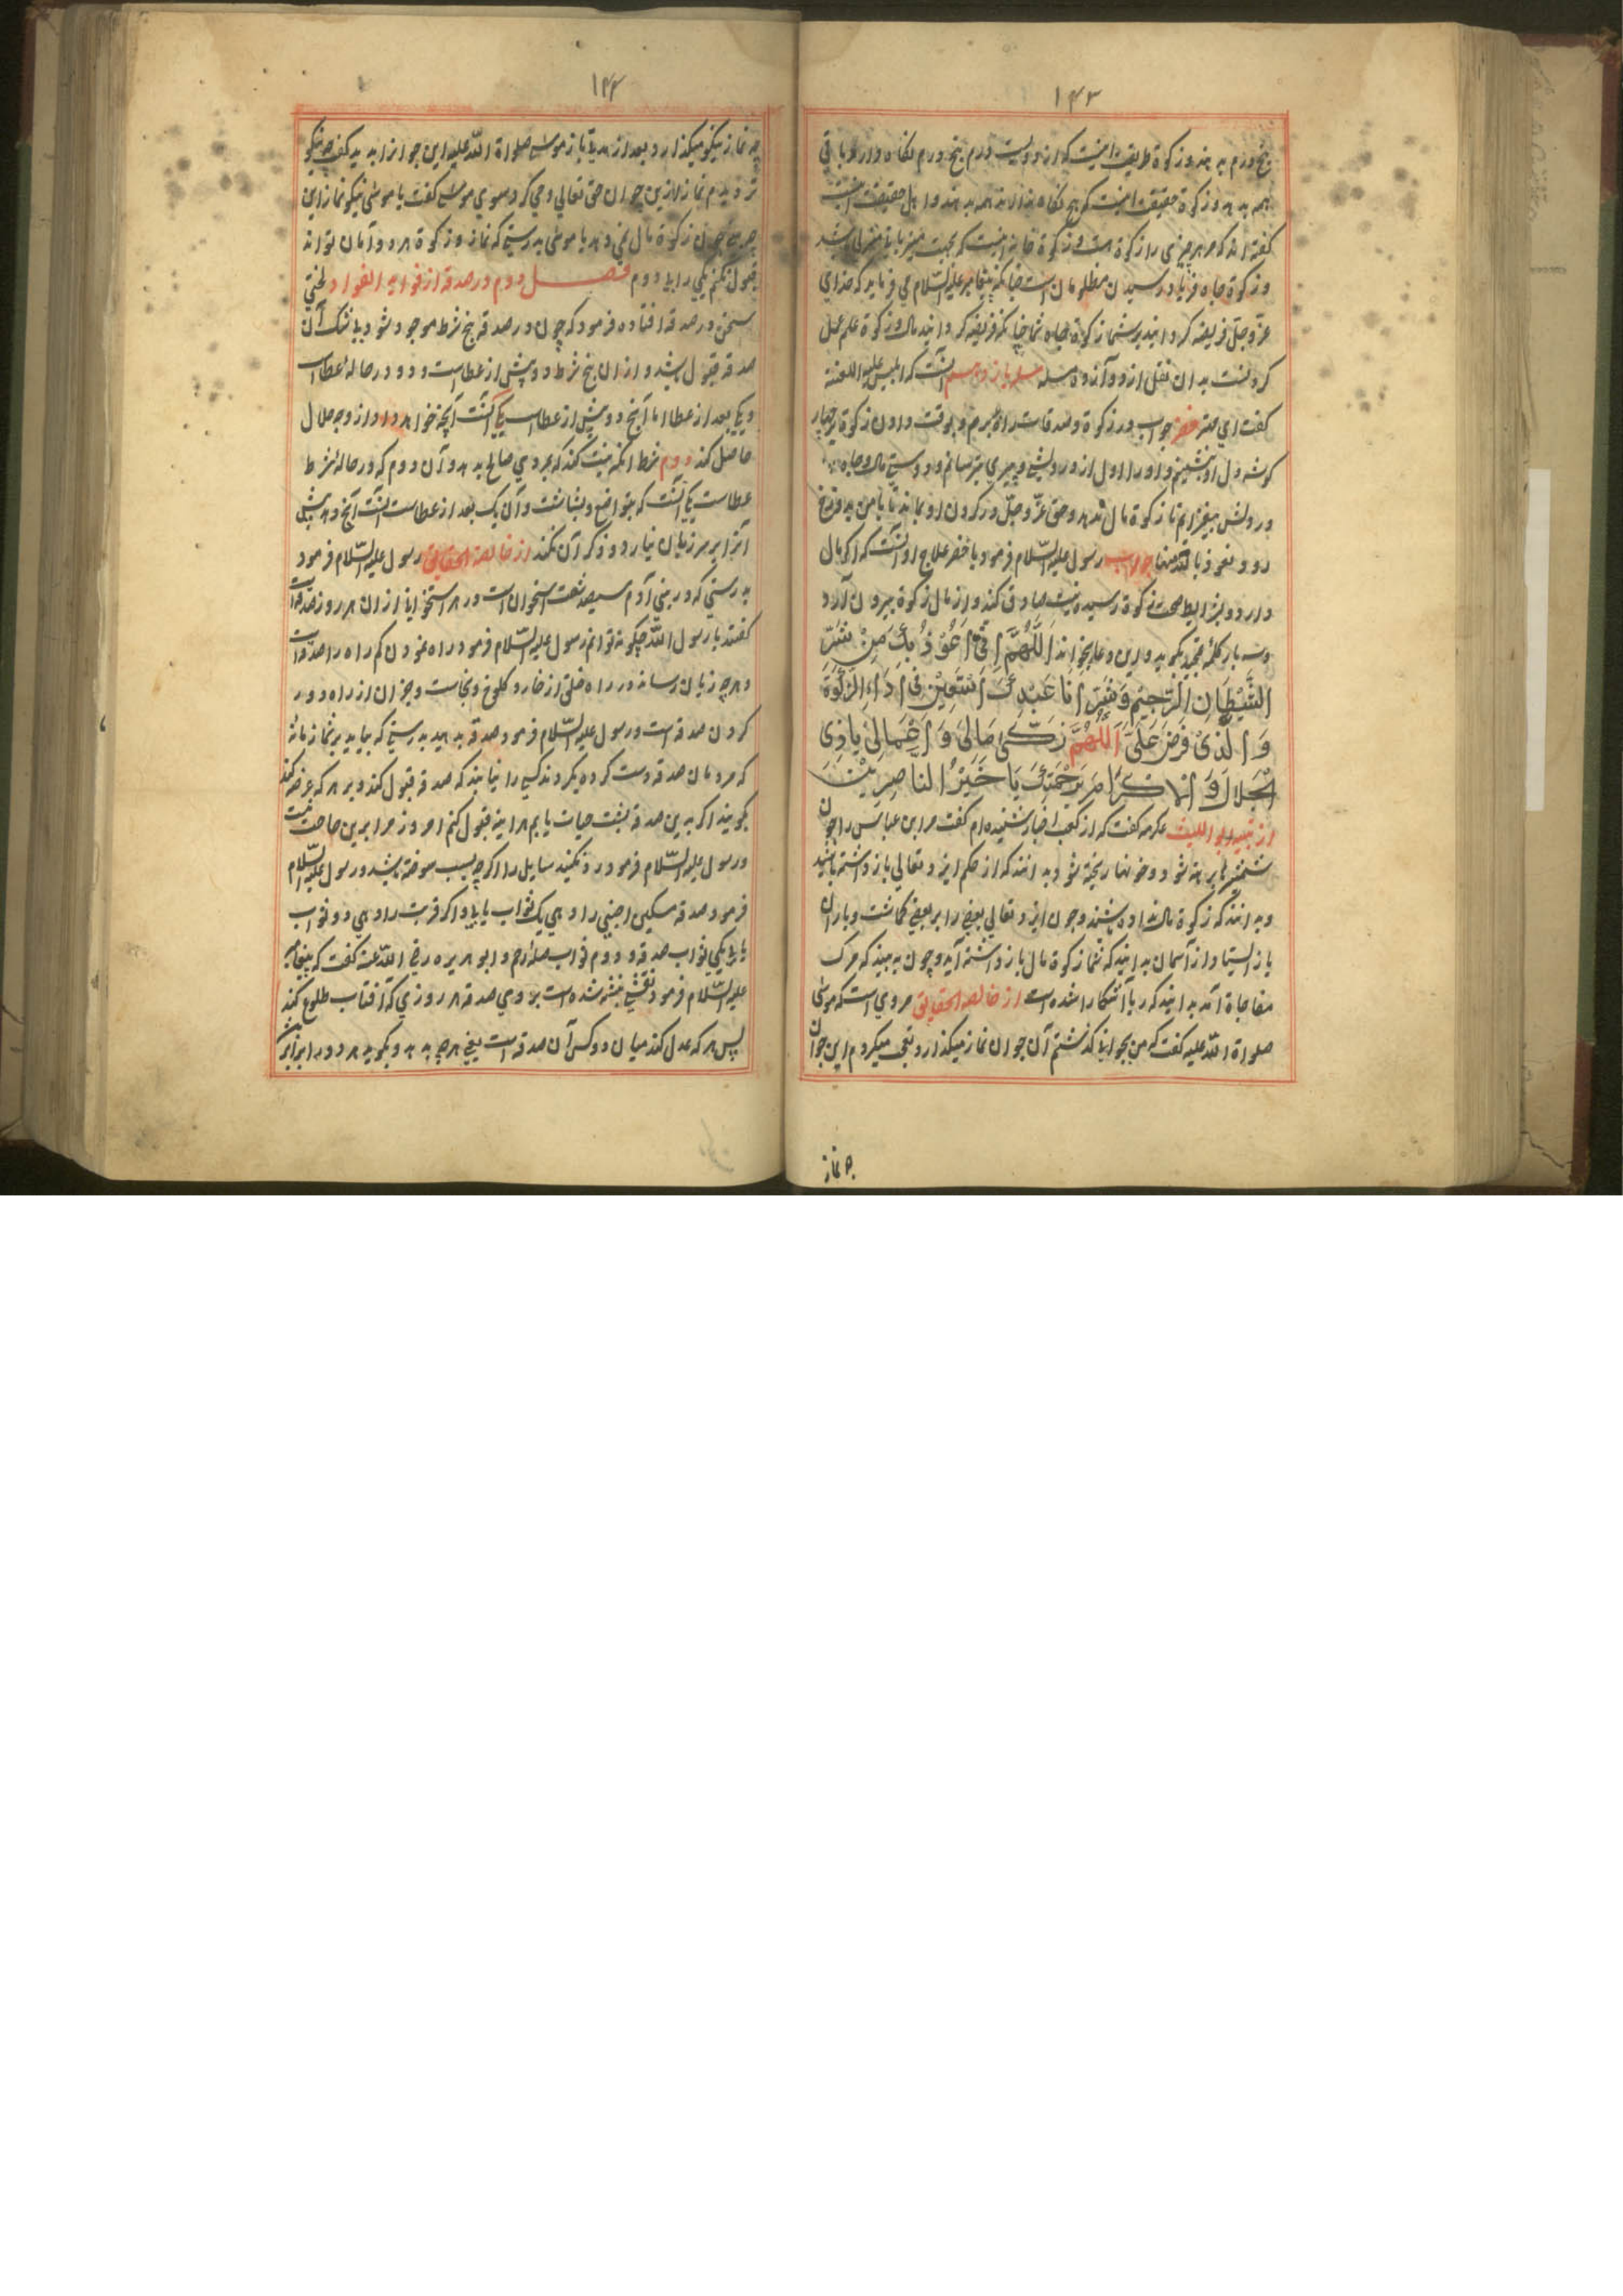 ۱۴۳
پنج درم بدهد و زکوة طریقت اینست که از دویست درم پنج درم نگاه دارد و باقی
همه بدهد و زکوة حقیقت اینست که هیچ نگاه ندارند همه بدهند و اهل حقیقت
گفته اند که هر چیزی را زکوة است و زکوة خانه اینست که
و زکوة جاه فریاد رسیدن مظلومان است چنانکه پیغامبر علیه السلام می فرماید که خدای
عز و جل فریضه گردانید بر شما زکوة جاه شما چنانکه فریضه گردانید مال و زکوة علم عمل
کردنست بدان نقل از دوازده مسله مسله یازدهم آنست که ابلیس علیه اللعنة
گفت ای خضر جواب در زکوة و صدقات و بوقت دادن زکوة بر چهار
گوشه دل او بنشینم و او را اول از درویشی و پیری بترسانم و دوستی مال و جاه
در دلش بیفزایم تا زکوة مال ندهد و حق عز و جل در گردن او بماند تا با من بدوزخ
رود نعوذ بالله منها جواب رسول علیه السلام فرمود یا خضر علاج او آنست که اگر مال
دارد و بشرایط صحت زکوة رسیده نیت صادق کند و از مال زکوة بیرون آرد
و سه بار کلمه تمجید بگوید و این دعا بخواند اَللّٰهُمَّ اِنِّی اَعُوْذُ بِكَ مِنْ شَرِّ
الشَّیْطَانِ الرَّجِیْمِ وَ اَنَا عَبْدُكَ اَسْتَعِیْنُ فِی اَدَاءِ الزَّکٰوةِ
وَ الَّذِیْ فَرَضَ عَلَیَّ اَللّٰهُمَّ زَکِّی مَالِیْ وَ اَعْمَالِیْ یَا ذِی
الْجَلَالِ وَ الْاِکْرَامِ بِرَحْمَتِكَ یَا خَیْرُ النَّاصِرِیْنَ
از تنبیه ابو اللیث عکرمه گفت که از کعب احبار شنیده ام گفت مر ابن عباس را چون
شمشیرها برهنه شود و خونها ریخته شود بدانند که از حکم ایزد تعالی باز داشته باشند
و بدانند که زکوة مال نداده باشند و چون ایزد تعالی بعضی را بر بعضی گماشت و باران
باز ایستاد از آسمان بدانید که شما زکوة مال باز داشته آید و چون به بیند که مرگ
مفاجاة آمد بدانید که ربا آشکارا شده است از خالصة الحقایق مروی است که موسی
صلوة الله علیه گفت که من بجوانی گذشتم آن جوان نماز میگذارد و تعجب میکردم این جوان
چه نماز
۱۴۴
چه نماز نیکو میگذارد بعد از مدتی باز موسی صلوة الله علیه این جوان را بدید گفت چه نیکو
تر دیدم نماز ازین جوان حق تعالی وحی کرد سوی موسی گفت یا موسی نیکو نماز این
چه چیز چون زکوة مال نمی دهد یا موسی بدرستی که نماز و زکوة هر دو توامان اند
قبول نکنم یکی را بی دوم فصل دوم در صدقه از فواید الفواد لختی
سخن در صدقه افتاده فرمود که چون در صدقه پنج شرط موجود شود بی شک آن
صدقه قبول باشد و ازان پنج شرط دو پیش از عطا است و دو در حاله عطا است
و یکی بعد از عطا اما آنچ دو پیش از عطا است یکی آنست آنچه خواهد داد از وجه حلال
حاصل کند دوم شرط انکه نیت کند که بمردی صالح بدهد و آن دوم که در حاله شرط
عطا ست یکی آنست که بتواضع و بشاشت و آن یک بعد از عطا ست آنست آنچ دهد پیش
آنرا بر سر زبان نیارد و ذکر آن نکند از خالصة الحقایق رسول علیه السلام فرمود
بدرستی که در بنی آدم سیصد شصت استخوان است و در هر استخوانی ازان هر روز صدقه است
گفتند یا رسول الله چگونه توانم رسول علیه السلام فرمود راه نمودن گم راه را صدقه است
و هر چه زیان رساند در راه خلق از خار و کلوخ و نجاست و جز آن از راه دور
کردن صدقه است و رسول علیه السلام فرمود صدقه بدهید بدرستی که بیاید بر شما زمانه
که مردمان صدقه دست کرده بگردند کسی را نیابند که صدقه قبول کند و بر هر که عرضه کنند
بگویند اگر به این صدقه حیات یابم هر اینه قبول کنم امروز مرا برین حاجت نیست
و رسول علیه السلام فرمود رد نکنید سایل را اگرچه بسبب سوخته باشد و رسول علیه السلام
فرمود صدقه مسکین اجنبی را دهی یک ثواب یابی و اگر قربت را دهی دو ثواب
یابی یکی ثواب صدقه و دوم ثواب صله رحم و ابو هریره رضی الله عنه گفت که پیغامبر
علیه السلام فرمود نفسی نبشته شده است بر وی صدقه هر روزی که آفتاب طلوع کند
پس هر که عدل کند میان دو کس آن صدقه است یعنی هر چه بدهد و بگوید هر دو را برابر